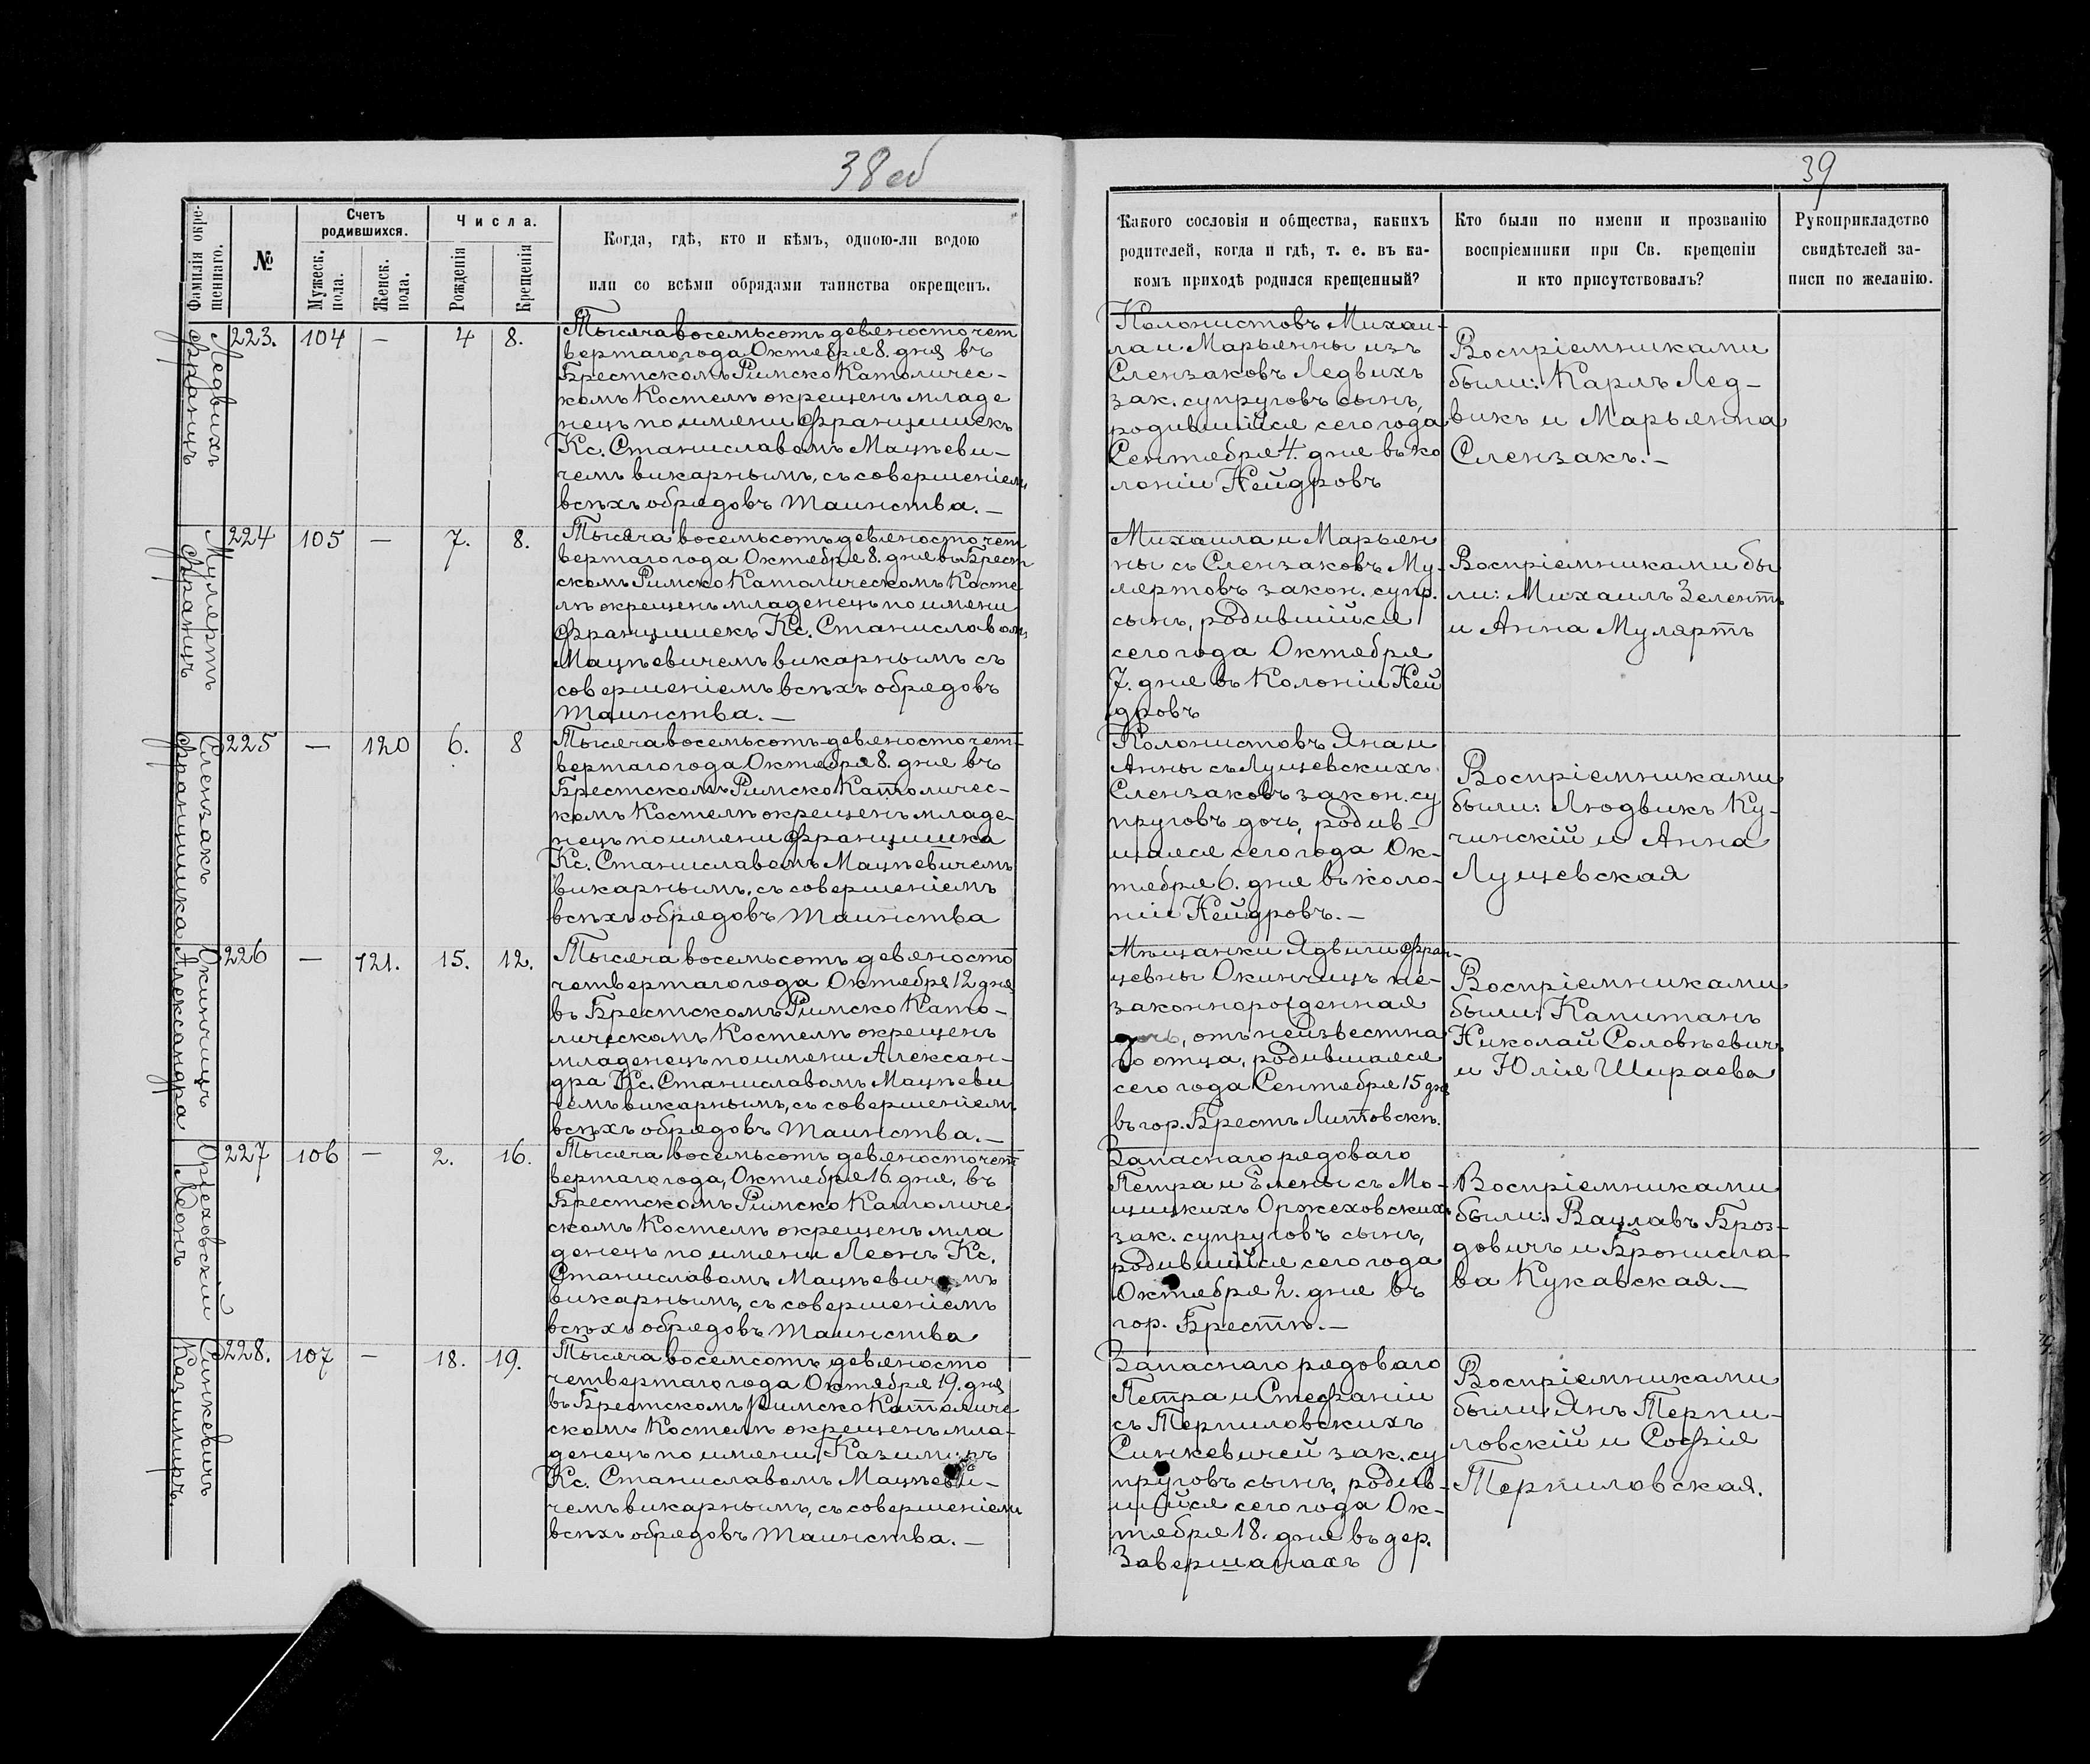 38 об
39
Фамилія окре-
щеннаго.
№
Счетъ
родившихся.
Мужеск.
пола.
Женск.
пола.
Числа.
Рожденія
Крещенія
Когда, гдѣ, кто и кѣмъ, одною-ли водою
или со всѣми обрядами таинства окрещенъ.
Какого сословія и общества, какихъ
родителей, когда и гдѣ, т. е. въ ка-
комъ приходѣ родился крещенный?
Кто были по имени и прозванію
воспріемники при Св. крещеніи
и кто присутствовалъ?
Рукоприкладство
свидѣтелей за-
писи по желанію.
Ледвихъ
Францъ
223. 104 — 4 8.
Тысяча восемьсотъ девяносто чет
вертаго года Октября 8. дня въ
Брестскомъ Римско Католичес-
комъ Костелѣ окрещенъ младе
нецъ по имени Францишекъ
Кс. Станиславомъ Мацѣеви-
чемъ викарнымъ, съ совершеніемъ
всѣхъ обрядовъ таинства. —
Колонистовъ Михаи-
ла и Марьянны изъ
Слензаковъ Ледвихъ
зак. супруговъ сынъ,
родившійся сего года
Сентября 4. дня въ ко
лоніи Нейдровъ
Воспріемниками
были: Карлъ Лед-
викъ и Марьянна
Слензакъ. —
Муляртъ
Францъ
224 105 — 7. 8.
Тысяча восемьсотъ девяносто чет
вертаго года Октября 8. дня въ Брест
скомъ Римско Католическомъ Косте
лѣ окрещенъ младенецъ по имени
Францишекъ Кс. Станиславомъ
Мацѣевичемъ викарнымъ съ
совершеніемъ всѣхъ обрядовъ
таинства. —
Михаила и Марьян
ны съ Слензаковъ Му-
ляртовъ закон. супр.
сынъ, родившійся
сего года Октября
7. дня въ Колоніи Ней
дровъ
Воспріемниками бы
ли: Михаилъ Зелентъ
и Анна Мулярть
Слензакъ
Францишка
225 — 120 6. 8
Тысяча восемьсотъ девяносто чет-
вертаго года Октября 8. дня въ
Брестскомъ Римско Католичес-
комъ Костелѣ окрещенъ младе-
нецъ по имени Францишка
Кс. Станиславомъ Мацѣевичемъ
викарнымъ, съ совершеніемъ
всѣхъ обрядовъ таинства
Колонистовъ Яна и
Анны съ Лущевскихъ
Слензаковъ закон. су
пруговъ дочь, родив-
шаяся сего года Ок-
тября 6. дня въ коло-
ніи Нейдровъ. —
Воспріемниками
были: Людвикъ Ку-
чинскій и Анна
Лущевская
Окинчицъ
Александра
226 — 121. 15. 12.
Тысяча восемьсотъ девяносто
четвертаго года Октября 12 дня
въ Брестскомъ Римско Като-
лическомъ Костелѣ окрещенъ
младенецъ по имени Алексан-
дра Кс. Станиславомъ Мацѣеви
чемъ викарнымъ, съ совершеніемъ
всѣхъ обрядовъ таинства. —
Мѣщанки Ядвиги Фран-
цевны Окинчицъ не-
законнорожденная
дочь, отъ неизвестна
го отца, родившаяся
сего года Сентября 15 дня
въ гор. Брестъ Литовскѣ.
Воспріемниками
были: Капитанъ
Николай Соловѣевичъ
и Юлія Шираева
Оржеховскій
Леонъ
227 106 — 2. 16.
Тысяча восемьсотъ девяносто чет
вертаго года, Октября 16. дня, въ
Брестскомъ Римско Католиче
скомъ Костелѣ окрещенъ мла
денецъ по имени Леонъ Кс.
Станиславомъ Мацѣевичемъ
викарнымъ, съ совершеніемъ
всѣхъ обрядовъ таинства
Запаснаго рядоваго
Петра и Елены съ Мо-
щицкихъ Оржеховскихъ
зак. супруговъ сынъ,
родившійся сего года
Октября 2. дня въ
гор. Брестѣ. —
Воспріемниками
были: Вацлавъ Броз-
довичъ и Бронисла-
ва Кукавская —
Синкевичъ
Казимиръ.
228. 107 — 18. 19.
Тысяча восемсотъ девяносто
четвертаго года Октября 19. дня
въ Брестскомъ Римско Католиче
скомъ Костелѣ окрещенъ мла-
денецъ по имени Казимиръ
Кс. Станиславомъ Мацѣеви-
чемъ викарнымъ, съ совершеніемъ
всѣхъ обрядовъ таинства. —
Запаснаго рядоваго
Петра и Стефаніи
съ Терпиловскихъ
Синкевичей зак. су
пруговъ сынъ, родив-
шійся сего года Ок-
тября 18. дня въ дер.
Завершанахъ
Воспріемниками
были: Янъ Терпи-
ловскій и Софія
Терпиловская.